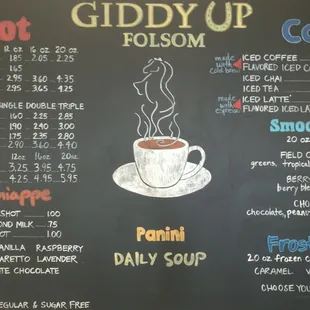 GIDDY UP
FOLSOM
ot
12 oz 16 oz 20 oz
1.85 2.05 2.25
1.65
2.95 3.60 4.35
2.95 3.65 4.25
SINGLE DOUBLE TRIPLE
1.60 2.25 2.85
1.90 2.40 3.00
1.75 2.35 2.80
2.90 3.60 4.40
12oz 16oz 20oz
3.25 3.95 4.75
4.25 4.95 5.95
iappe
SHOT 1.00
OND MILK .75
OT 1.00
ANILLA RASPBERRY
ARETTO LAVENDER
TE CHOCOLATE
EGULAR & SUGAR FREE
Panini
DAILY SOUP
Co
made with cold brew
ICED COFFEE
FLAVORED ICED CO
ICED CHAI
ICED TEA
made with espresso
ICED LATTE
FLAVORED ICED LA
Smoo
20 oz
FIELD O
greens, tropical
BERR
berry ble
CHO
chocolate, peanu
Frost
20 oz frozen c
CARAMEL V
CHOOSE YOU